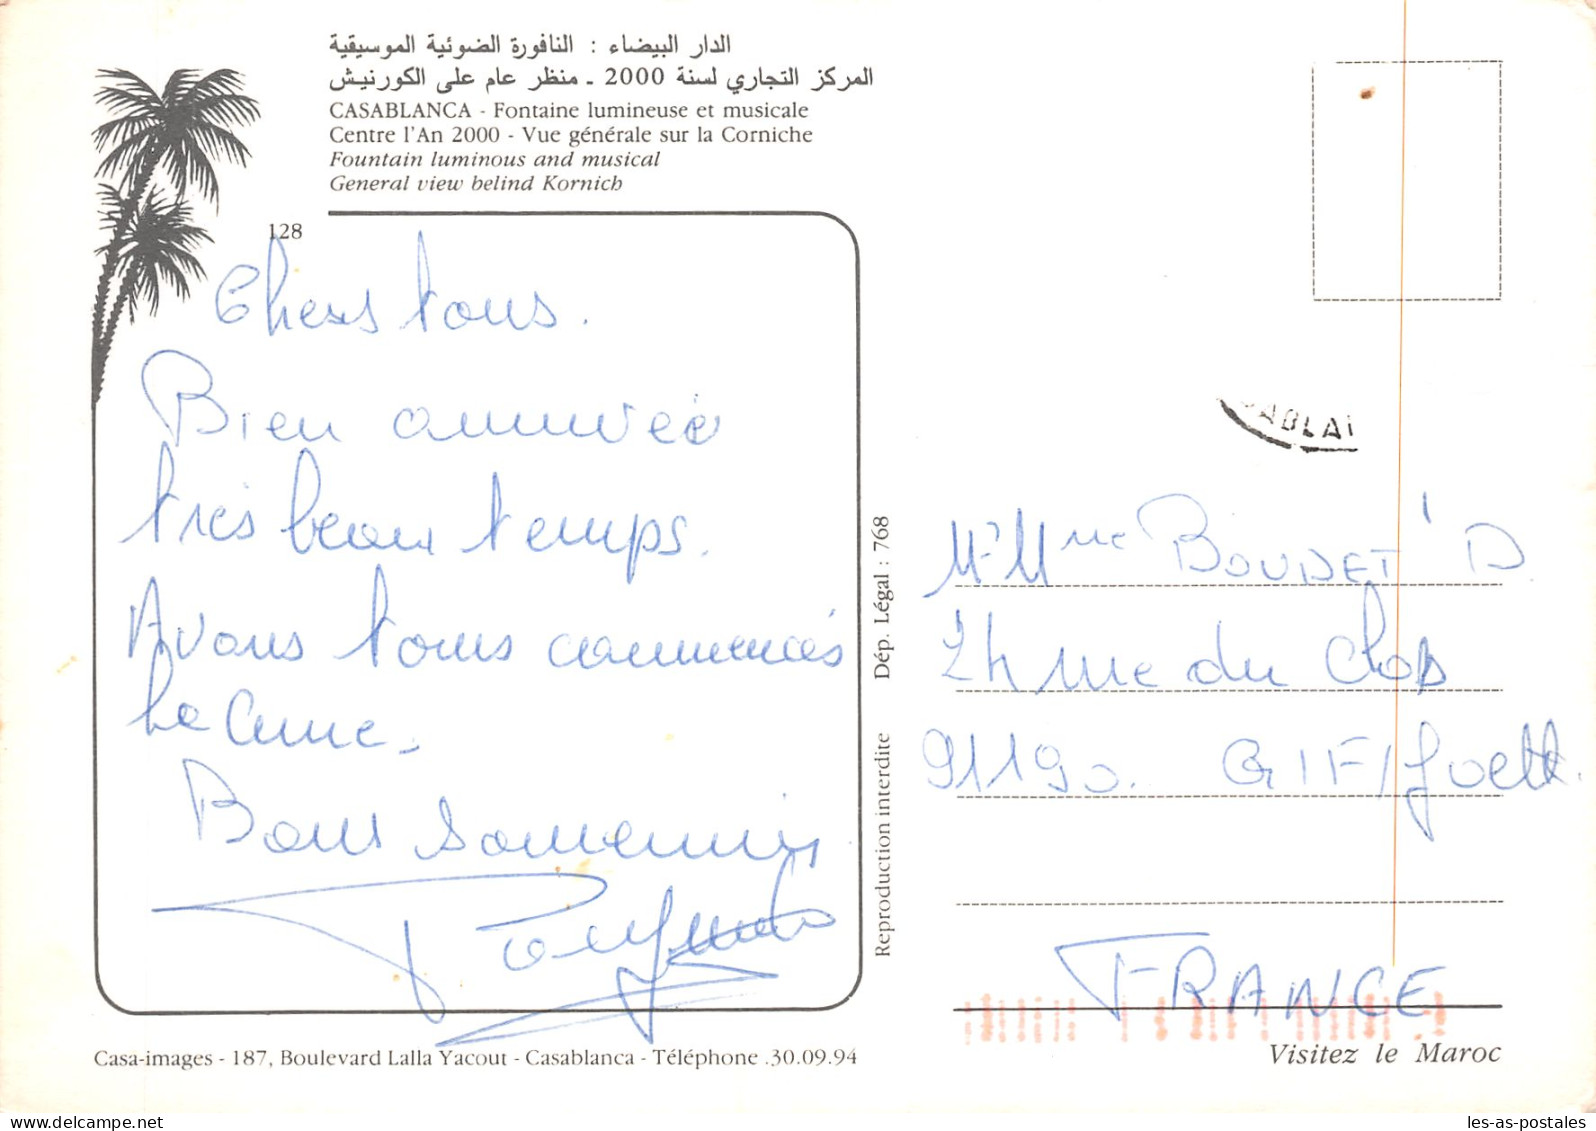 الدار البيضاء : النافورة الضوئية الموسيقية
المركز التجاري لسنة 2000 ـ منظر عام على الكورنيش
CASABLANCA - Fontaine lumineuse et musicale
Centre l'An 2000 - Vue générale sur la Corniche
Fountain luminous and musical
General view belind Kornich
128
Chers tous.
Bien arrivée
très beau temps.
Avons tous commencés
la cure.
Bons souvenirs
ABLA
Dép. Légal : 768
Reproduction interdite
Mr Mme BOUDET D
24 rue du Clos
91190. GIF/Yvette.
FRANCE
Casa-images - 187, Boulevard Lalla Yacout - Casablanca - Téléphone .30.09.94
Visitez le Maroc
les-as-postales